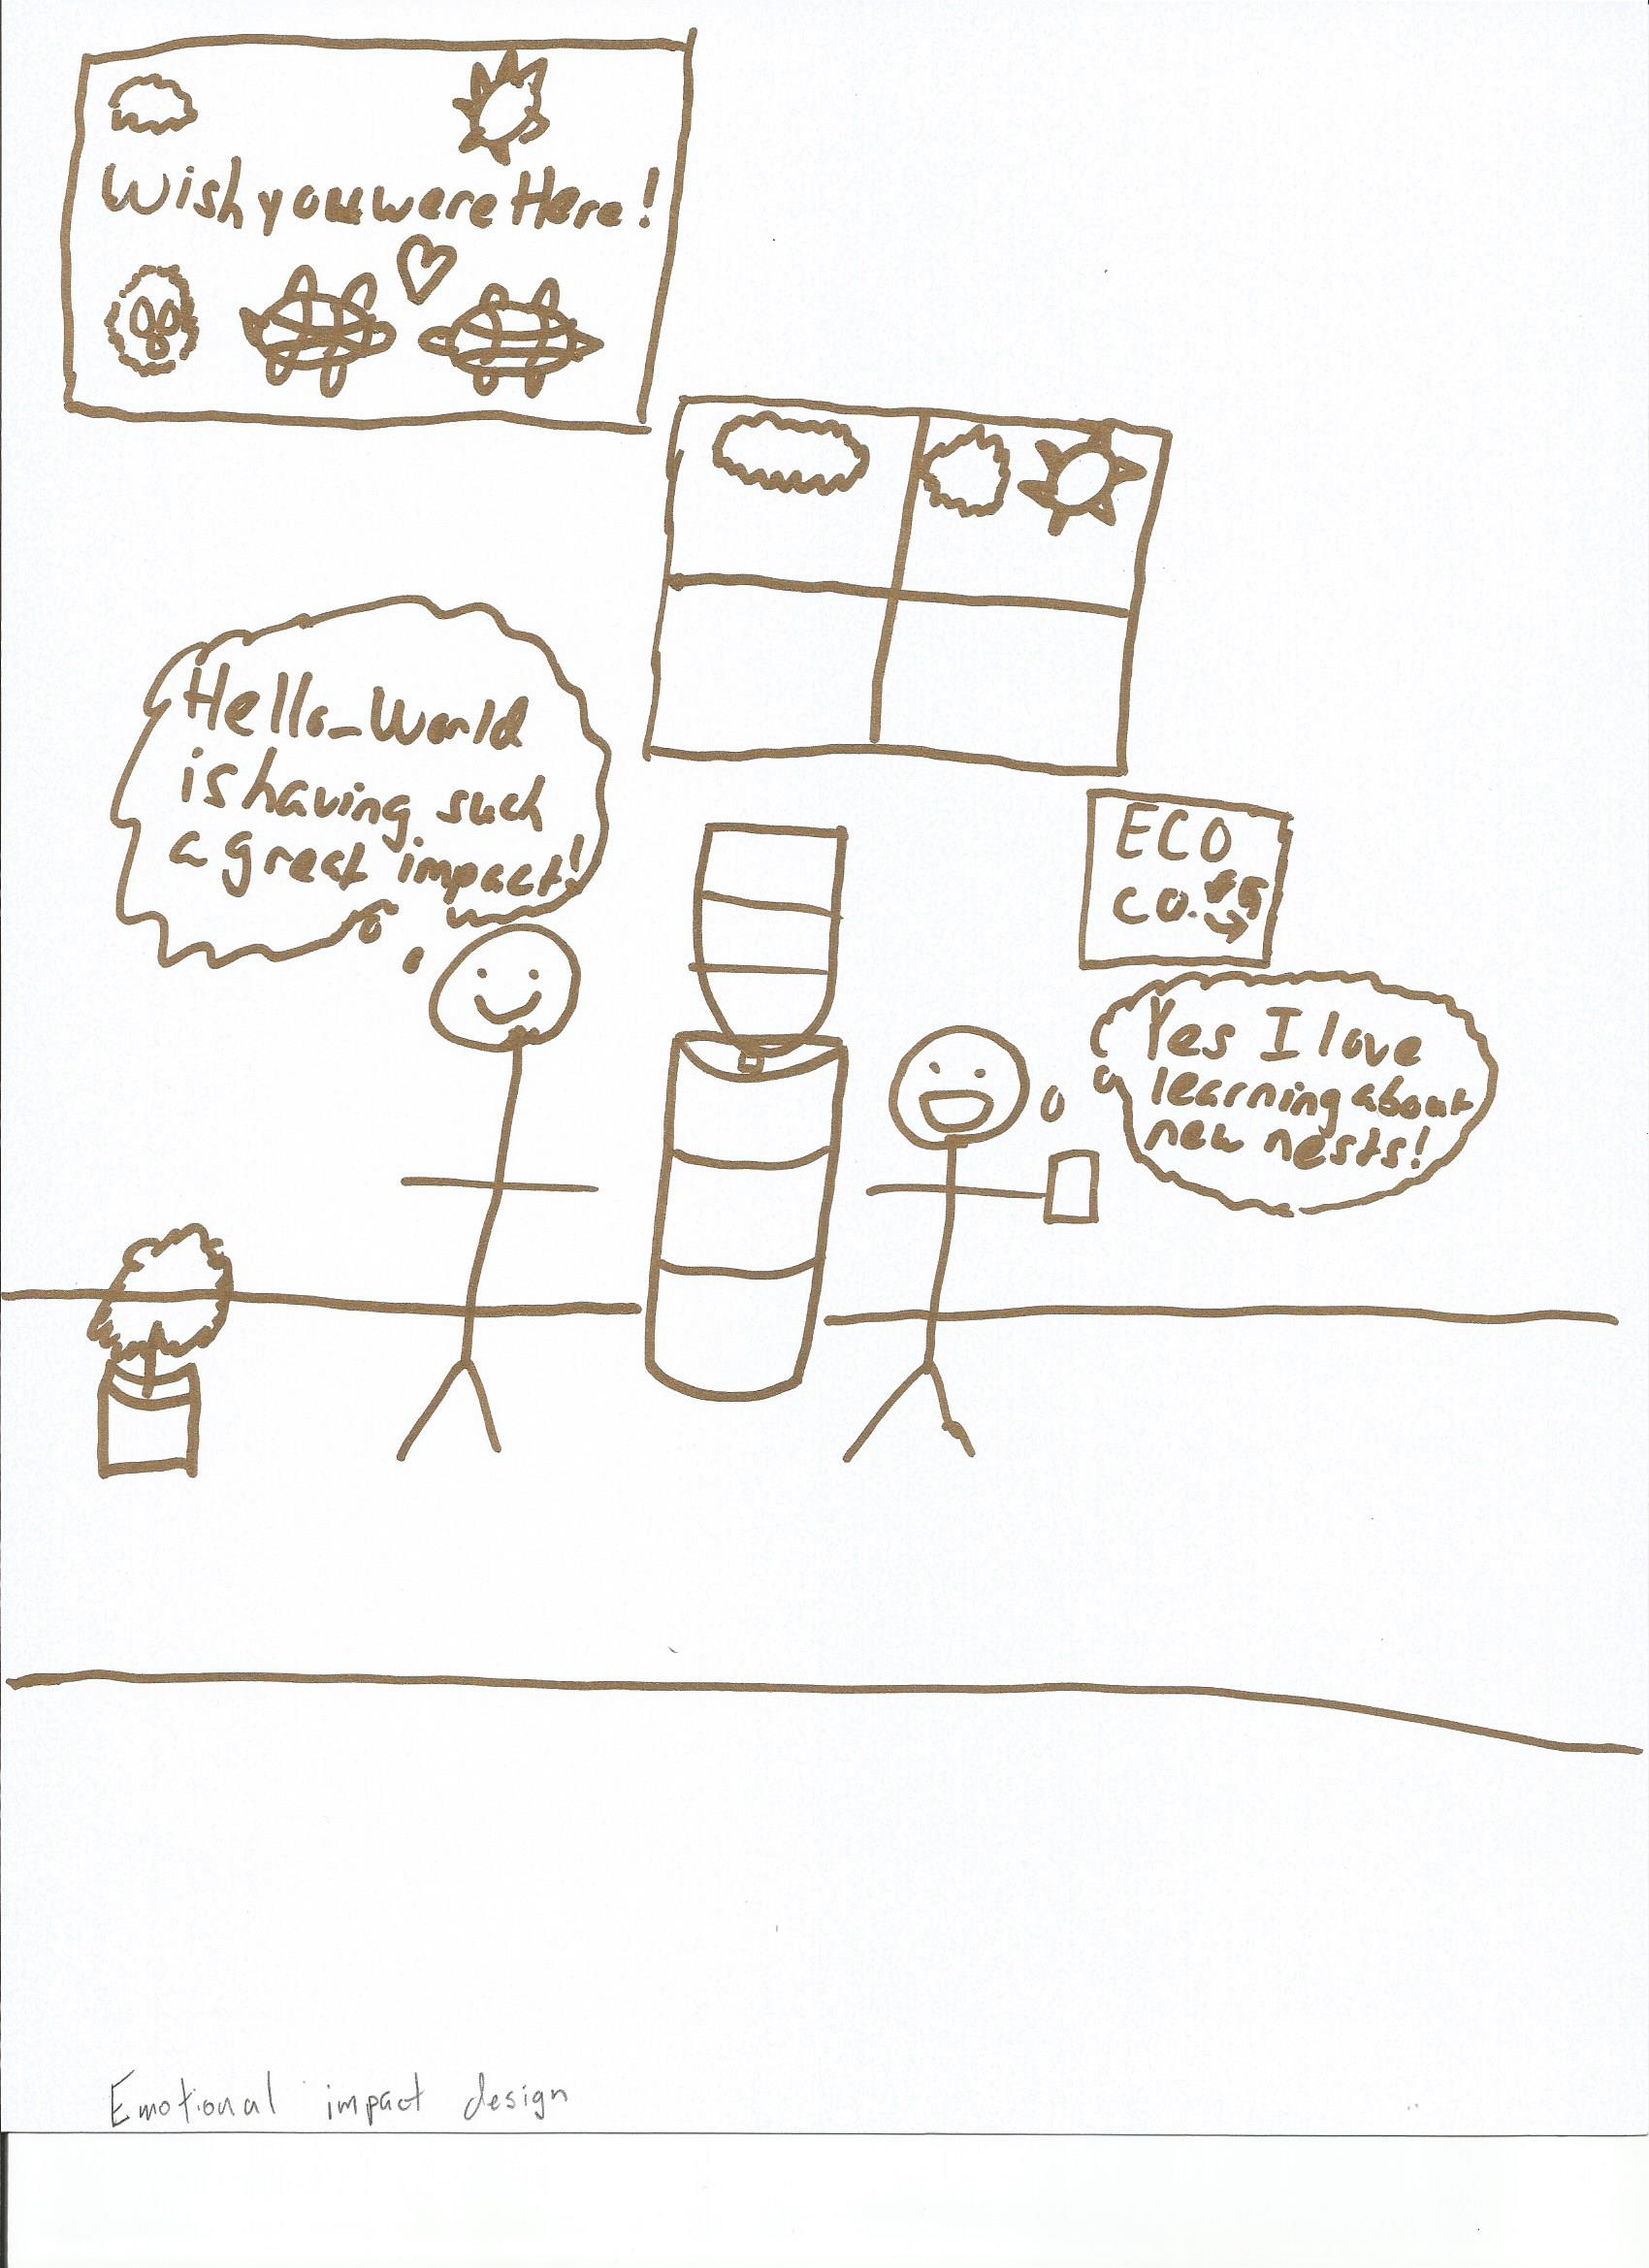 Wish you were Here!
Hello-World
is having such
a great impact!
ECO
CO.
Yes I love
learning about
new nests!
Emotional impact design